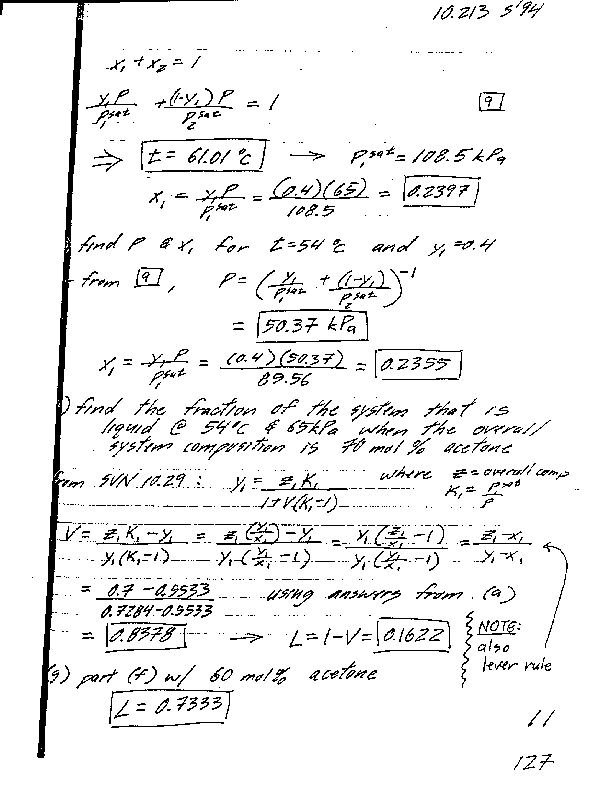 10.213 S'94
x₁ + x₂ = 1
y₁P/P₁ˢᵃᵗ + (1-y₁)P/P₂ˢᵃᵗ = 1   [9]
⇒ t = 61.01 °C → P₁ˢᵃᵗ = 108.5 kPa
x₁ = y₁P/P₁ˢᵃᵗ = (0.4)(65)/108.5 = 0.2397
find P & x₁ for t = 54 °C and y₁ = 0.4
from [9], P = (y₁/P₁ˢᵃᵗ + (1-y₁)/P₂ˢᵃᵗ)⁻¹
= 50.37 kPa
x₁ = y₁P/P₁ˢᵃᵗ = (0.4)(50.37)/85.56 = 0.2355
) find the fraction of the system that is
liquid @ 54°C & 65kPa when the overall
system composition is 70 mol % acetone
from SVN 10.29: y₁ = z₁K₁/1+V(K₁-1) where z = overall comp
K₁ = P₁ˢᵃᵗ/P
V = z₁K₁-y₁/y₁(K₁-1) = z₁(y₁/x₁)-y₁/y₁(y₁/x₁-1) = y₁(z₁/x₁-1)/y₁(y₁/x₁-1) = z₁-x₁/y₁-x₁
= 0.7-0.5533/0.7284-0.5533 using answers from (a)
= 0.8378 → L = 1-V = 0.1622
NOTE:
also
lever rule
(g) part (f) w/ 60 mol% acetone
L = 0.7333
11
127